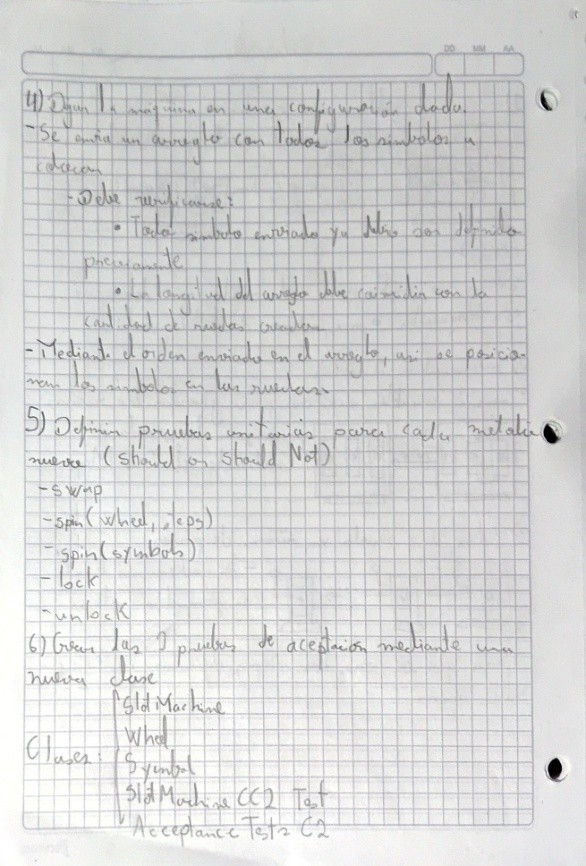 DD MM AA
4) Dejar la maquina en una configuración dada.
- Se envia un arreglo con todos los simbolos a
colocar
- Debe verificarse:
• Todo simbolo enviado ya debio ser definido
previamente
• La longitud del arreglo debe coincidir con la
cantidad de ruedas creadas
- Mediante el orden enviado en el arreglo, asi se posicio-
nan los simbolos en las ruedas.
5) Definir pruebas unitarias para cada metodo
nuevo (should or should Not)
- swap
- spin(wheel, steps)
- spin(symbols)
- lock
- unlock
6) Crear las pruebas de aceptacion mediante una
nueva clase
Slot Machine
Wheel
Clases:
Symbol
Slot Machine CC2 Test
Acceptance Tests C2